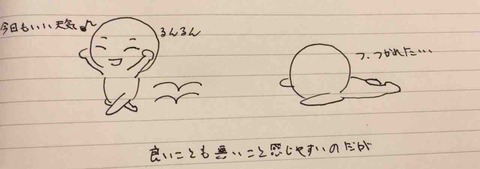 今日もいい天気♪
るんるん
つ、つかれた…
良いことも悪いこと感じやすいのだが